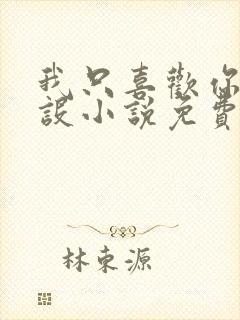 我只喜歡你
設小說免費
林東源